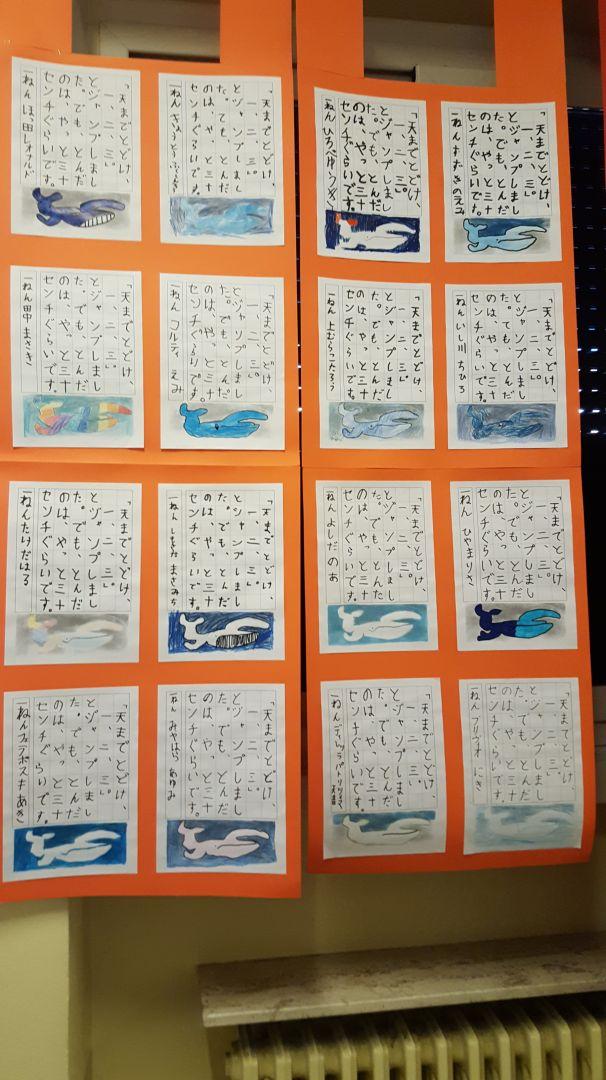 「天までとどけ、
一、二、三。」
とジャンプしまし
た。でも、とんだ
のは、やっと三十
センチぐらいです。
一ねん ほっ田 レオナルド
「天までとどけ、
一、二、三。」
とジャンプしまし
た。でも、とんだ
のは、やっと三十
センチぐらいです。
一ねん
「天までとどけ、
一、二、三。」
とジャンプしまし
た。でも、とんだ
のは、やっと三十
センチぐらいです。
一ねん
「天までとどけ、
一、二、三。」
とジャンプしまし
た。でも、とんだ
のは、やっと三十
センチぐらいです。
一ねん すずきのえみ
「天までとどけ、
一、二、三。」
とジャンプしまし
た。でも、とんだ
のは、やっと三十
センチぐらいです。
一ねん 田中 まさき
「天までとどけ、
一、二、三。」
とジャンプしまし
た。でも、とんだ
のは、やっと三十
センチぐらいです。
一ねん コルティ えみ
「天までとどけ、
一、二、三。」
とジャンプしまし
た。でも、とんだ
のは、やっと三十
センチぐらいです。
一ねん 上むら
「天までとどけ、
一、二、三。」
とジャンプしまし
た。でも、とんだ
のは、やっと三十
センチぐらいです。
一ねん いし川 ちひろ
「天までとどけ、
一、二、三。」
とジャンプしまし
た。でも、とんだ
のは、やっと三十
センチぐらいです。
一ねん たけだ はる
「天までとどけ、
一、二、三。」
とジャンプしまし
た。でも、とんだ
のは、やっと三十
センチぐらいです。
一ねん まさみち
「天までとどけ、
一、二、三。」
とジャンプしまし
た。でも、とんだ
のは、やっと三十
センチぐらいです。
一ねん よしだ のあ
「天までとどけ、
一、二、三。」
とジャンプしまし
た。でも、とんだ
のは、やっと三十
センチぐらいです。
一ねん ひやまりさ
「天までとどけ、
一、二、三。」
とジャンプしまし
た。でも、とんだ
のは、やっと三十
センチぐらいです。
一ねん あき
「天までとどけ、
一、二、三。」
とジャンプしまし
た。でも、とんだ
のは、やっと三十
センチぐらいです。
一ねん みやはら あゆみ
「天までとどけ、
一、二、三。」
とジャンプしまし
た。でも、とんだ
のは、やっと三十
センチぐらいです。
一ねん
「天までとどけ、
一、二、三。」
とジャンプしまし
た。でも、とんだ
のは、やっと三十
センチぐらいです。
一ねん にき